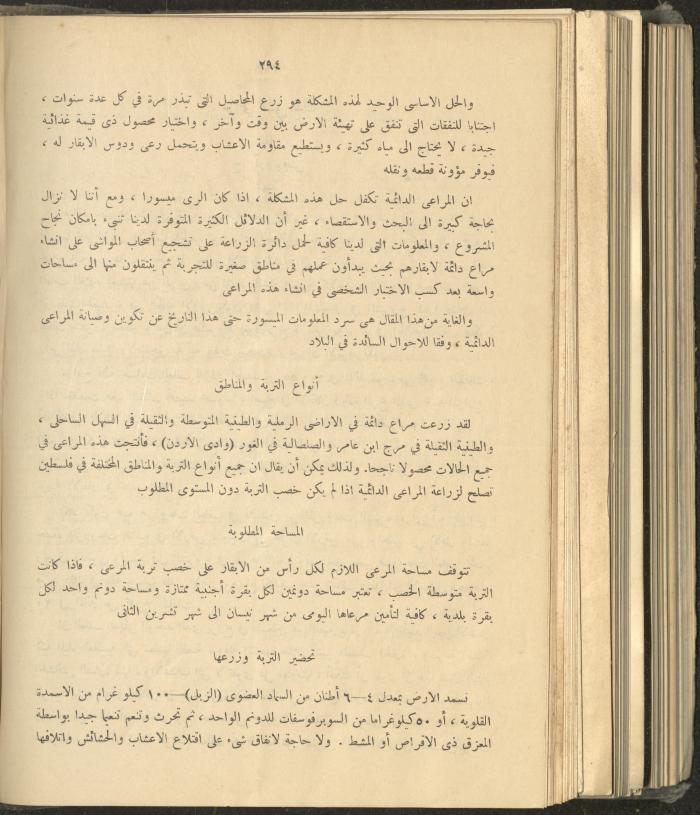 ٢٩٤
والحل الاساسى الوحيد لهذه المشكلة هو زرع المحاصيل التى تبذر مرة في كل عدة سنوات ،
اجتنابا للنفقات التى تنفق على تهيئة الارض بين وقت وآخر ، واختيار محصول ذى قيمة غذائية
جيدة ، لا يحتاج الى مياه كثيرة ، ويستطيع مقاومة الاعشاب ويتحمل رعى ودوس الابقار له ،
فيوفر مؤونة قطعه ونقله
ان المراعى الدائمية تكفل حل هذه المشكلة ، اذا كان الرى ميسورا ، ومع أننا لا نزال
بحاجة كبيرة الى البحث والاستقصاء ، غير أن الدلائل الكثيرة المتوفرة لدينا تنبىء بامكان نجاح
المشروع ، والمعلومات التى لدينا كافية لحمل دائرة الزراعة على تشجيع أصحاب المواشى على انشاء
مراع دائمة لابقارهم بحيث يبدأون عملهم في مناطق صغيرة للتجربة ثم ينتقلون منها الى مساحات
واسعة بعد كسب الاختبار الشخصى في انشاء هذه المراعى
والغاية من هذا المقال هى سرد المعلومات الميسورة حتى هذا التاريخ عن تكوين وصيانة المراعى
الدائمية ، وفقا للاحوال السائدة في البلاد
أنواع التربة والمناطق
لقد زرعت مراع دائمة في الاراضى الرملية والطينية المتوسطة والثقيلة في السهل الساحلى ،
والطينية الثقيلة في مرج ابن عامر والصلصالية في الغور (وادى الاردن) ، فأنتجت هذه المراعى في
جميع الحالات محصولا ناجحا. ولذلك يمكن أن يقال ان جميع أنواع التربة والمناطق المختلفة في فلسطين
تصلح لزراعة المراعى الدائمية اذا لم يكن خصب التربة دون المستوى المطلوب
المساحة المطلوبة
تتوقف مساحة المرعى اللازم لكل رأس من الابقار على خصب تربة المرعى ، فاذا كانت
التربة متوسطة الخصب ، تعتبر مساحة دونمين لكل بقرة أجنبية ممتازة ومساحة دونم واحد لكل
بقرة بلدية ، كافية لتأمين مرعاها اليومى من شهر نيسان الى شهر تشرين الثانى
تحضير التربة وزرعها
تسمد الارض بمعدل ٤—٦ أطنان من السماد العضوى (الزبل)—١٠٠ كيلو غرام من الاسمدة
القلوية ، أو ٥٠ كيلوغراما من السوبرفوسفات للدونم الواحد ، ثم تحرث وتنعم تنعيما جيدا بواسطة
المعزق ذى الاقراص أو المشط . ولا حاجة لانفاق شىء على اقتلاع الاعشاب والحشائش واتلافها